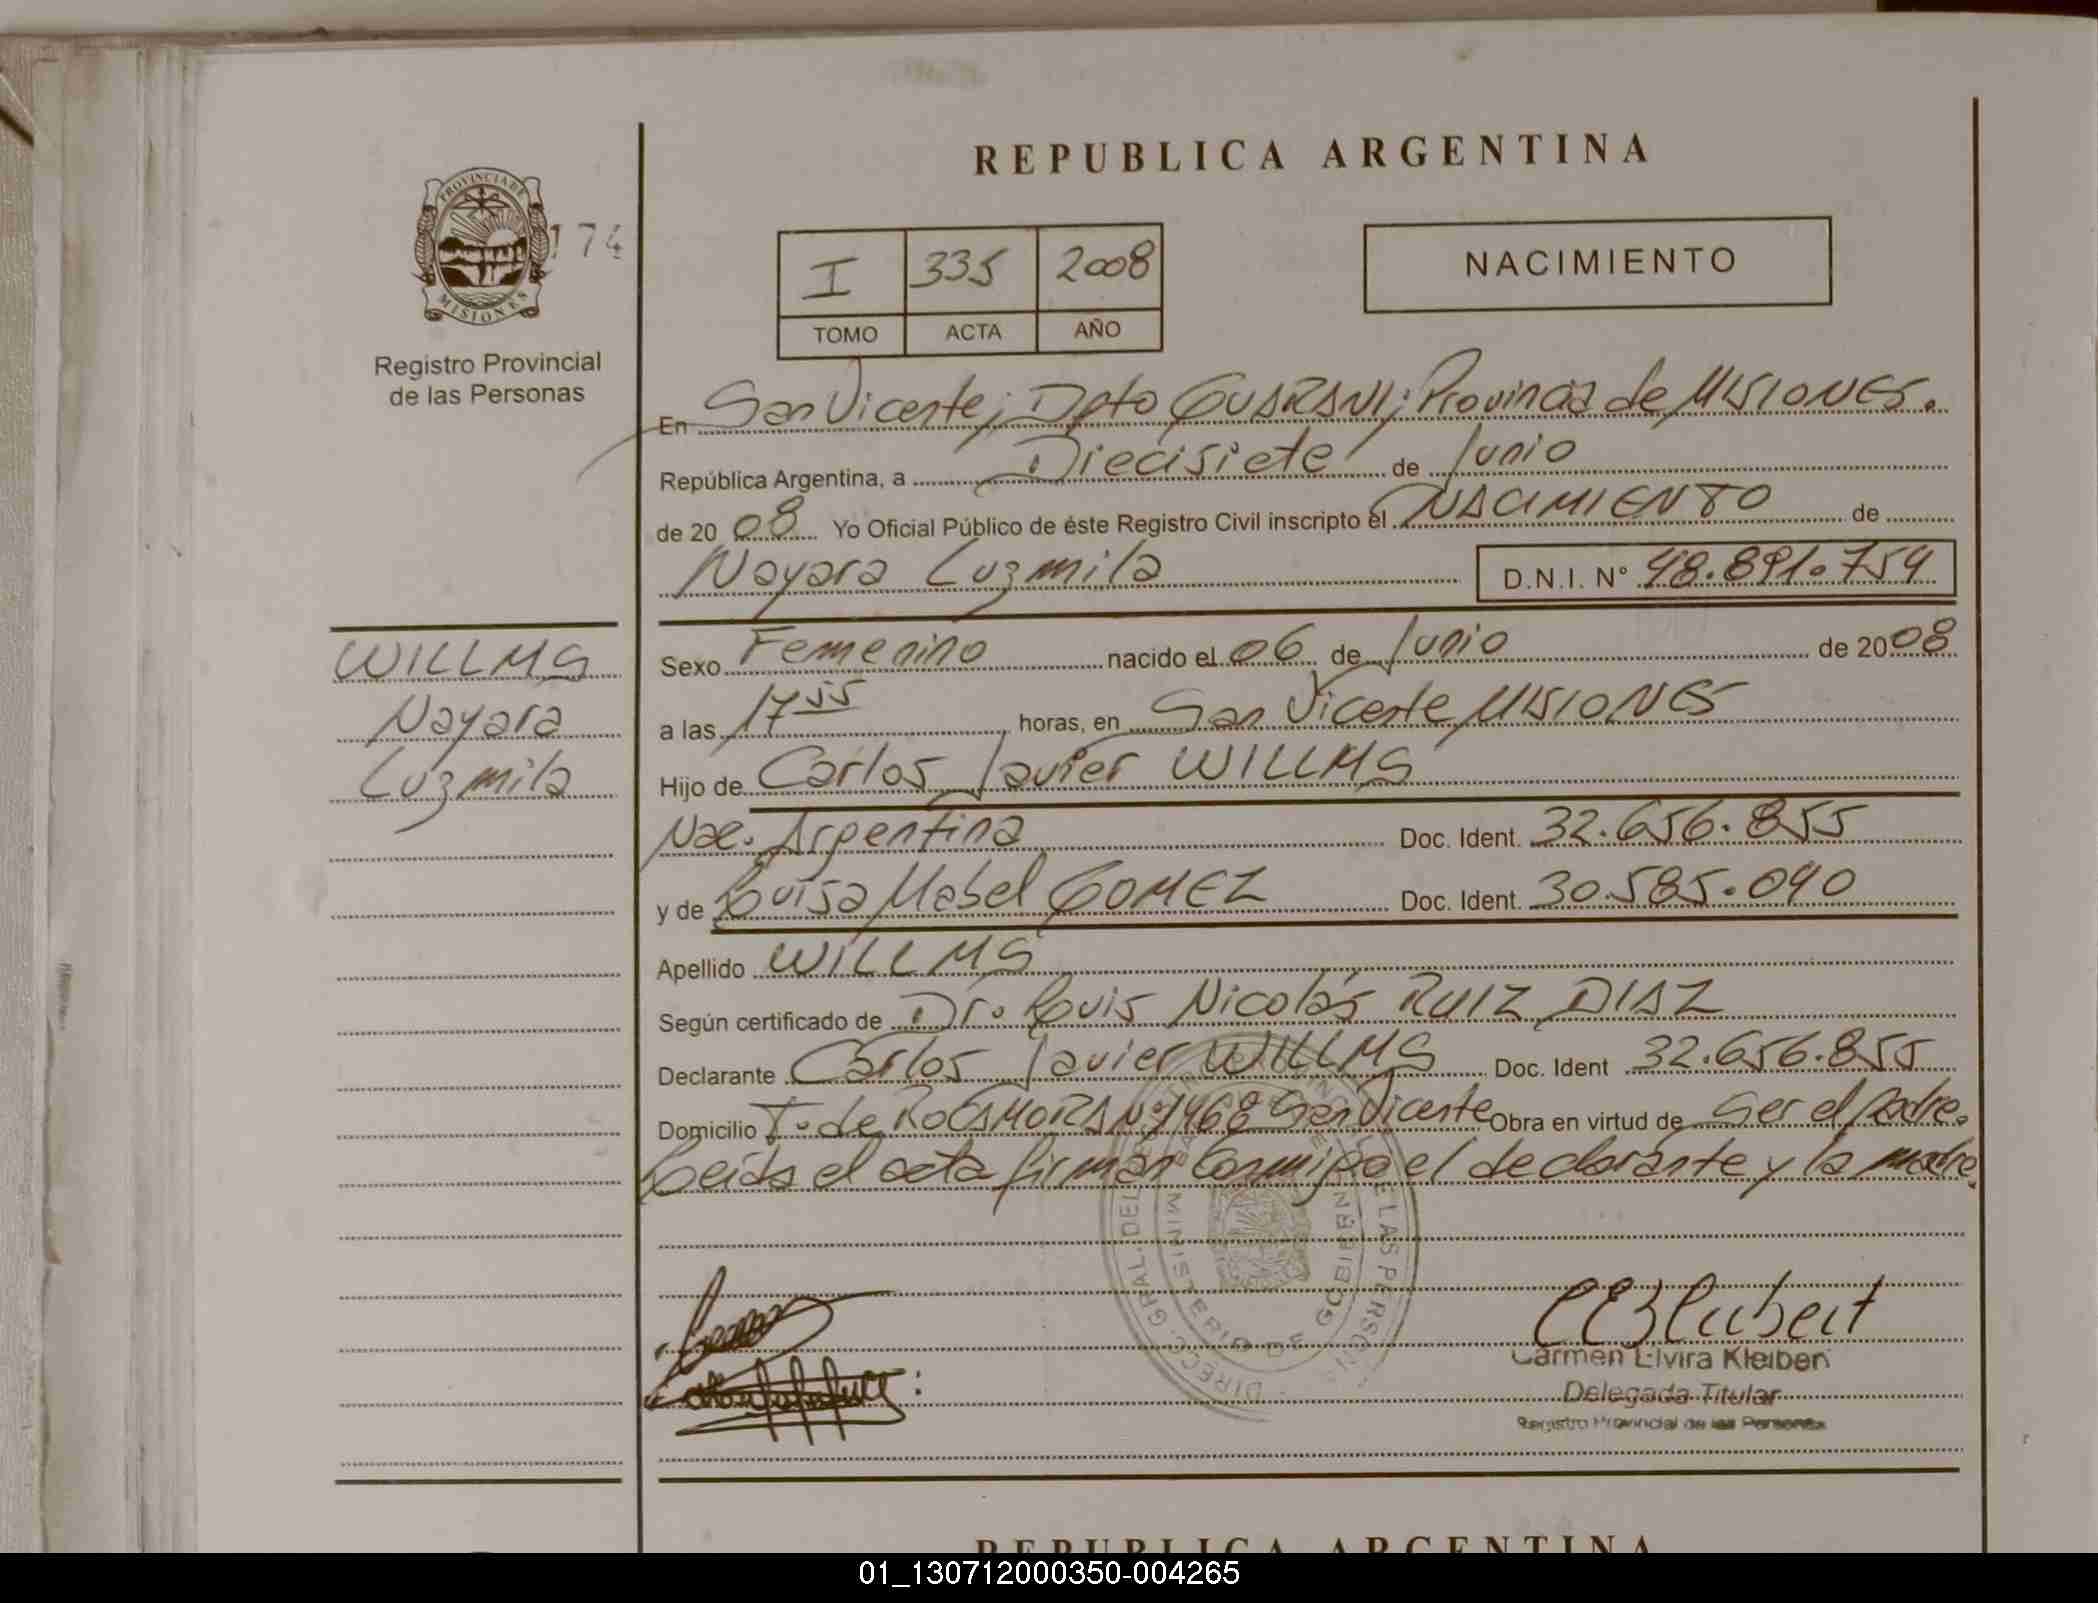 REPUBLICA ARGENTINA
PROVINCIA DE
MISIONES
174
Registro Provincial
de las Personas
I 335 2008
TOMO ACTA AÑO
NACIMIENTO
En San Vicente; Dpto GUARANI; Provincia de MISIONES.
República Argentina, a Diecisiete de Junio
de 2008 Yo Oficial Público de éste Registro Civil inscripto el NACIMIENTO de
Nayara Luzmila D.N.I. Nº 48.891.754
WILLMS
Nayara
Luzmila
Sexo Femenino nacido el 06 de Junio de 2008
a las 17 55 horas, en San Vicente MISIONES
Hijo de Carlos Javier WILLMS
Nac. Argentina Doc. Ident. 32.656.855
y de Luisa Mabel GOMEZ Doc. Ident. 30.585.040
Apellido WILLMS
Según certificado de Dr. Luis Nicolás RUIZ DIAZ
Declarante Carlos Javier WILLMS Doc. Ident 32.656.855
Domicilio T. de ROCAMORA Nº 1468 San Vicente Obra en virtud de Ser el Padre.
Leída el acta firman conmigo el declarante y la madre.
DIRECC. GRAL. DEL DE LAS PERSON
MINISTERIO DE GOBIERN
Carmen Elvira Kleiben
Delegada Titular
Registro Provincial de las Personas
REPUBLICA ARGENTINA
01_130712000350-004265